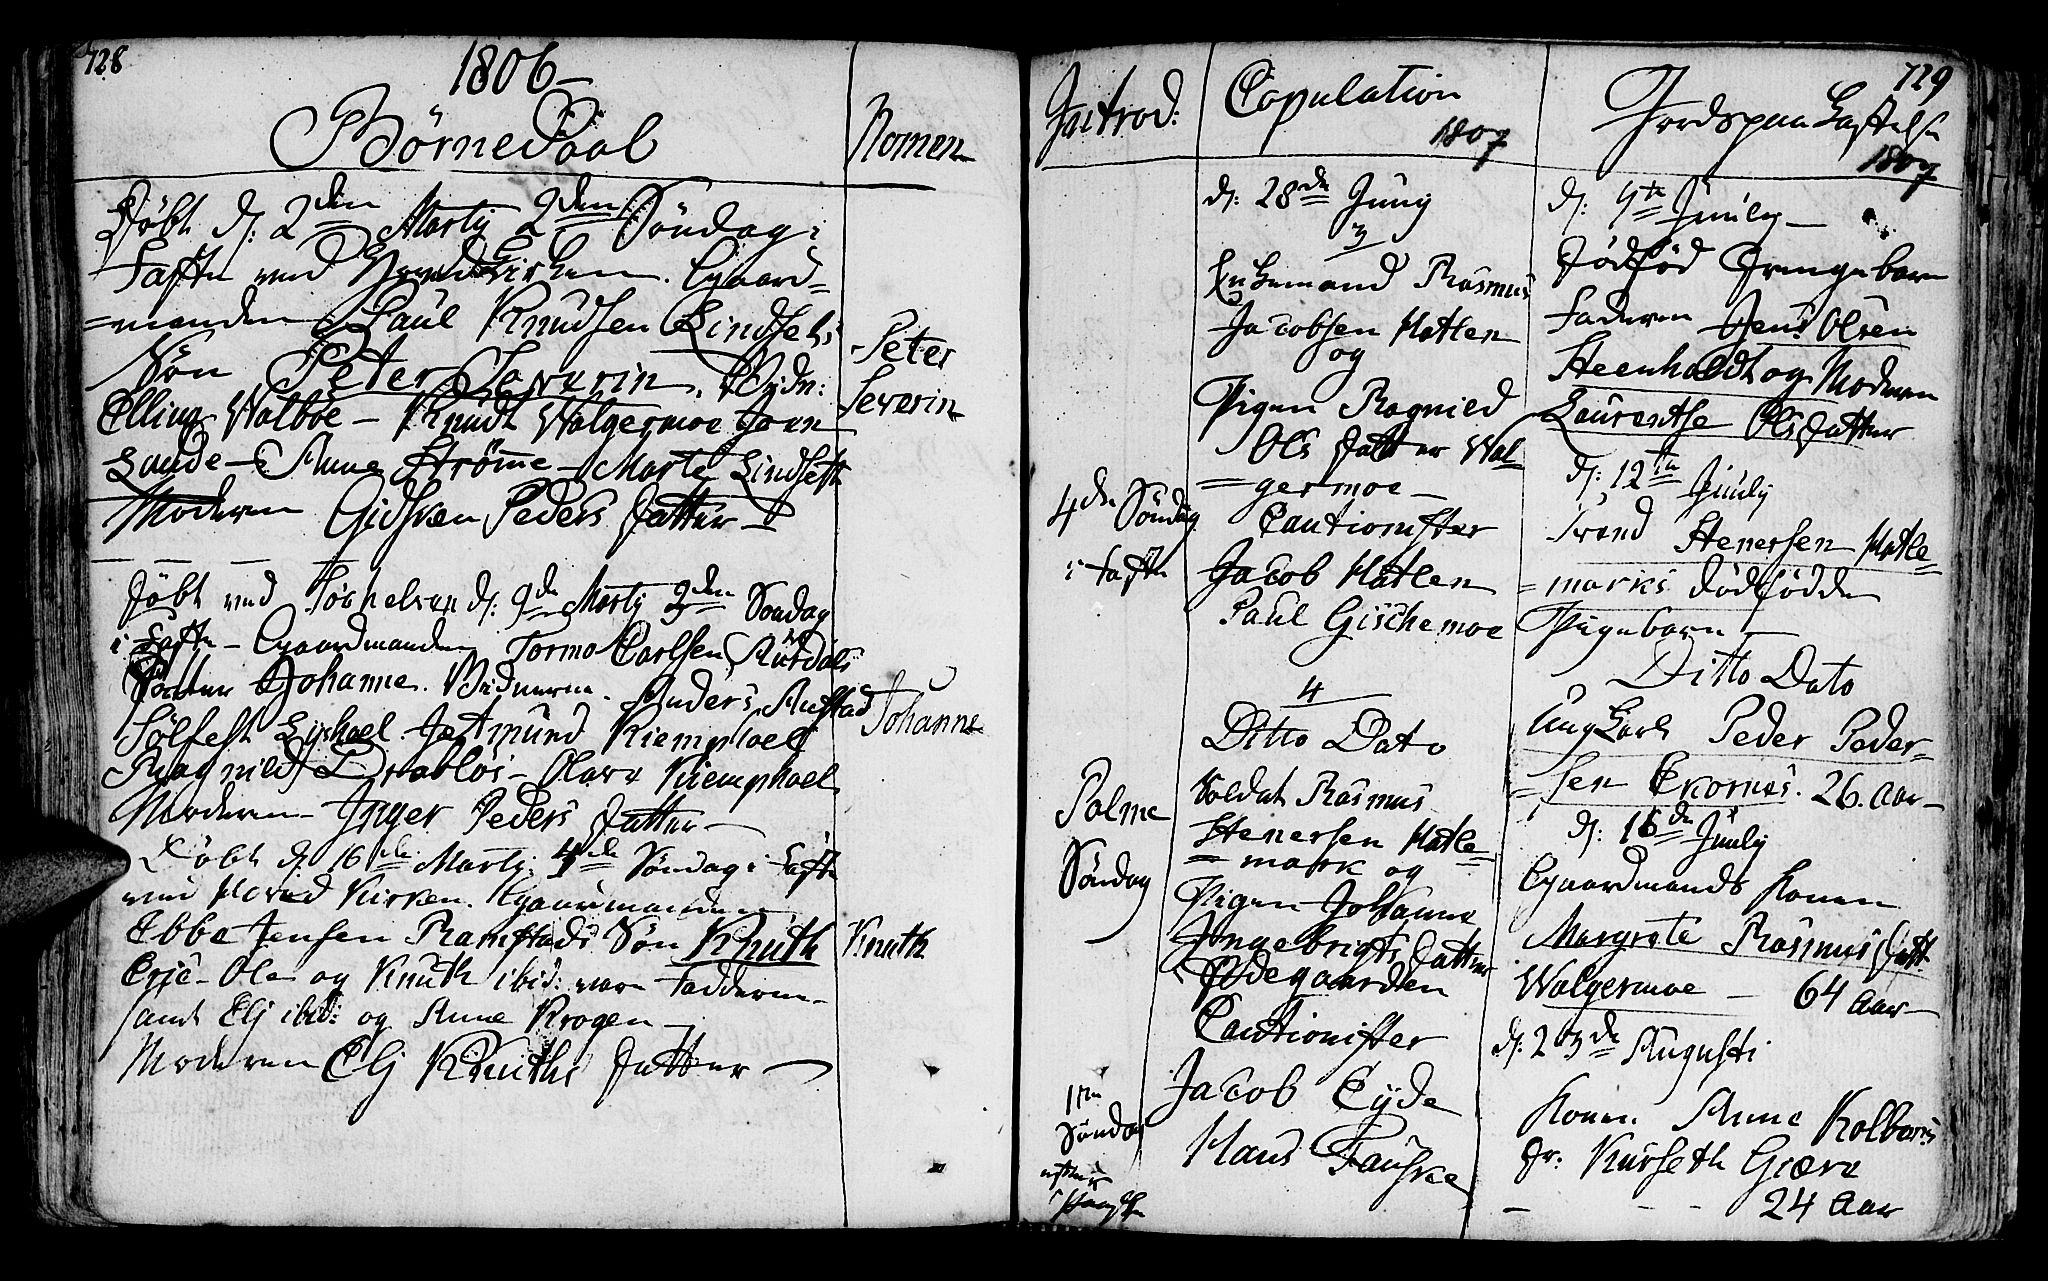 728
1806
BørneDaab
Nomen
Døbt d: 2den Martij 2den Søndag i
Faste ved Kirken. Gaard=
=manden Paul Knudsen Lindseths
Søn Peter Severin. Vidn:
Elling Walboe - Knudt Walgermoe Joen
Lande - Anne Strømme - Marte Lindseth
Moderen Gidsken Peders Datter
Peter
Severin
Døbt ved d: 9de Martij 3den Søndag
i Faste - Gaardmanden Tormo Carlsen Aursdals
Datter Johanne. Vidnerne. Anders Austad
Sølfest Lyshoel. Jetmund Kiemphoel
Ragnild Drabløs - Olava Kiemphoel
Moderen Inger Peders Datter
Johanne
Døbt d: 16de Martij. 4de Søndag i Faste
ved Kirken. Gaardmanden
Ebbe Jensen Ramstads Søn Knuth
Eric - Ole og Knuth ibid: vare Fadderne
samt Elj ibid: og Anne Krogen
Moderen Elj Knuths Datter
Knuth
Introd:
4de Søndag
i Faste
Palme
Søndag
1ste
Søndag
efter
Paaske
Copulation
1807
d: 28de Junij
3
Enkemand Rasmus
Jacobsen Hatlen
og
Pigen Ragnild
Ols Datter Wal
=germoe
Cautionister
Jacob Hatlen
Paul Gischemoe
4
Ditto Dato
Soldat Rasmus
Stenersen Hatle=
=mark og
Pigen Johanne
Ingebrigts Datter
Ødegaarden
Cautionister
Jacob Eyde
Hans Fauske
729
Jordspaakastelse
1807
d: Julij
Dødfød Drengebarn
Faderen Jens Olsen
Steenholdt og Moderen
Laurentse Ols Datter
d: 12te Julij
Trond Stenersen Hatle=
=marks dødfødde
Pigebarn
Ditto Dato
Ung Karl Peder Peder=
=sen Ekornes. 26. Aar
d: 16de Julij
Gaardmands Konen
Margrete Rasmus Datt.
Walgermoe - 64 Aar
d: 23de Augusti
Konen Anne Kolbens
Dr: Kurseth Giære
24 Aar